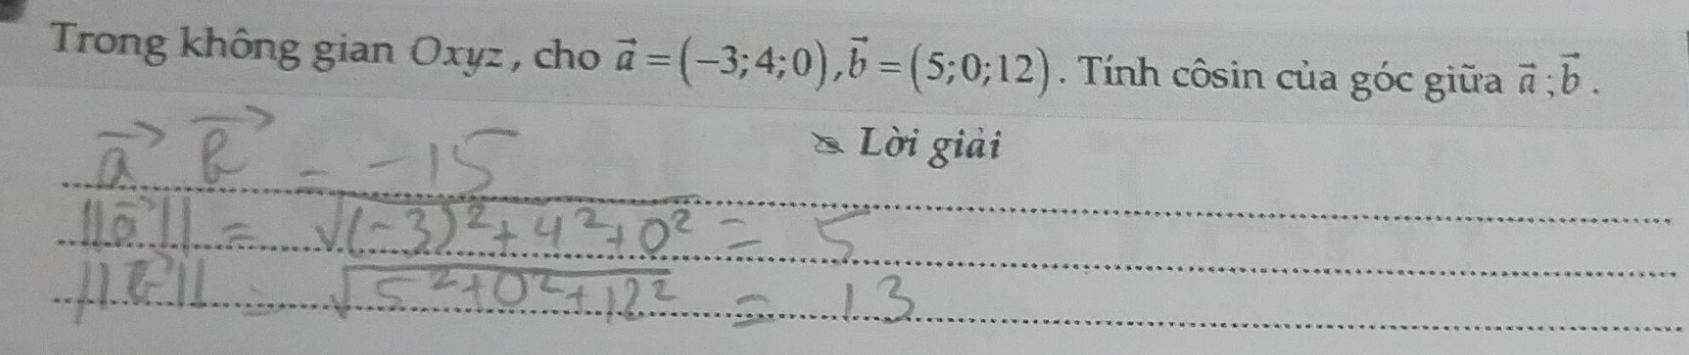 Trong không gian Oxyz, cho a⃗ = (−3;4;0), b⃗ = (5;0;12). Tính côsin của góc giữa a⃗ ; b⃗ .
Lời giải
a⃗ b⃗ = -15
||a⃗|| = √((-3)² + 4² + 0²) = 5
||b⃗|| = √(5² + 0² + 12²) = 13